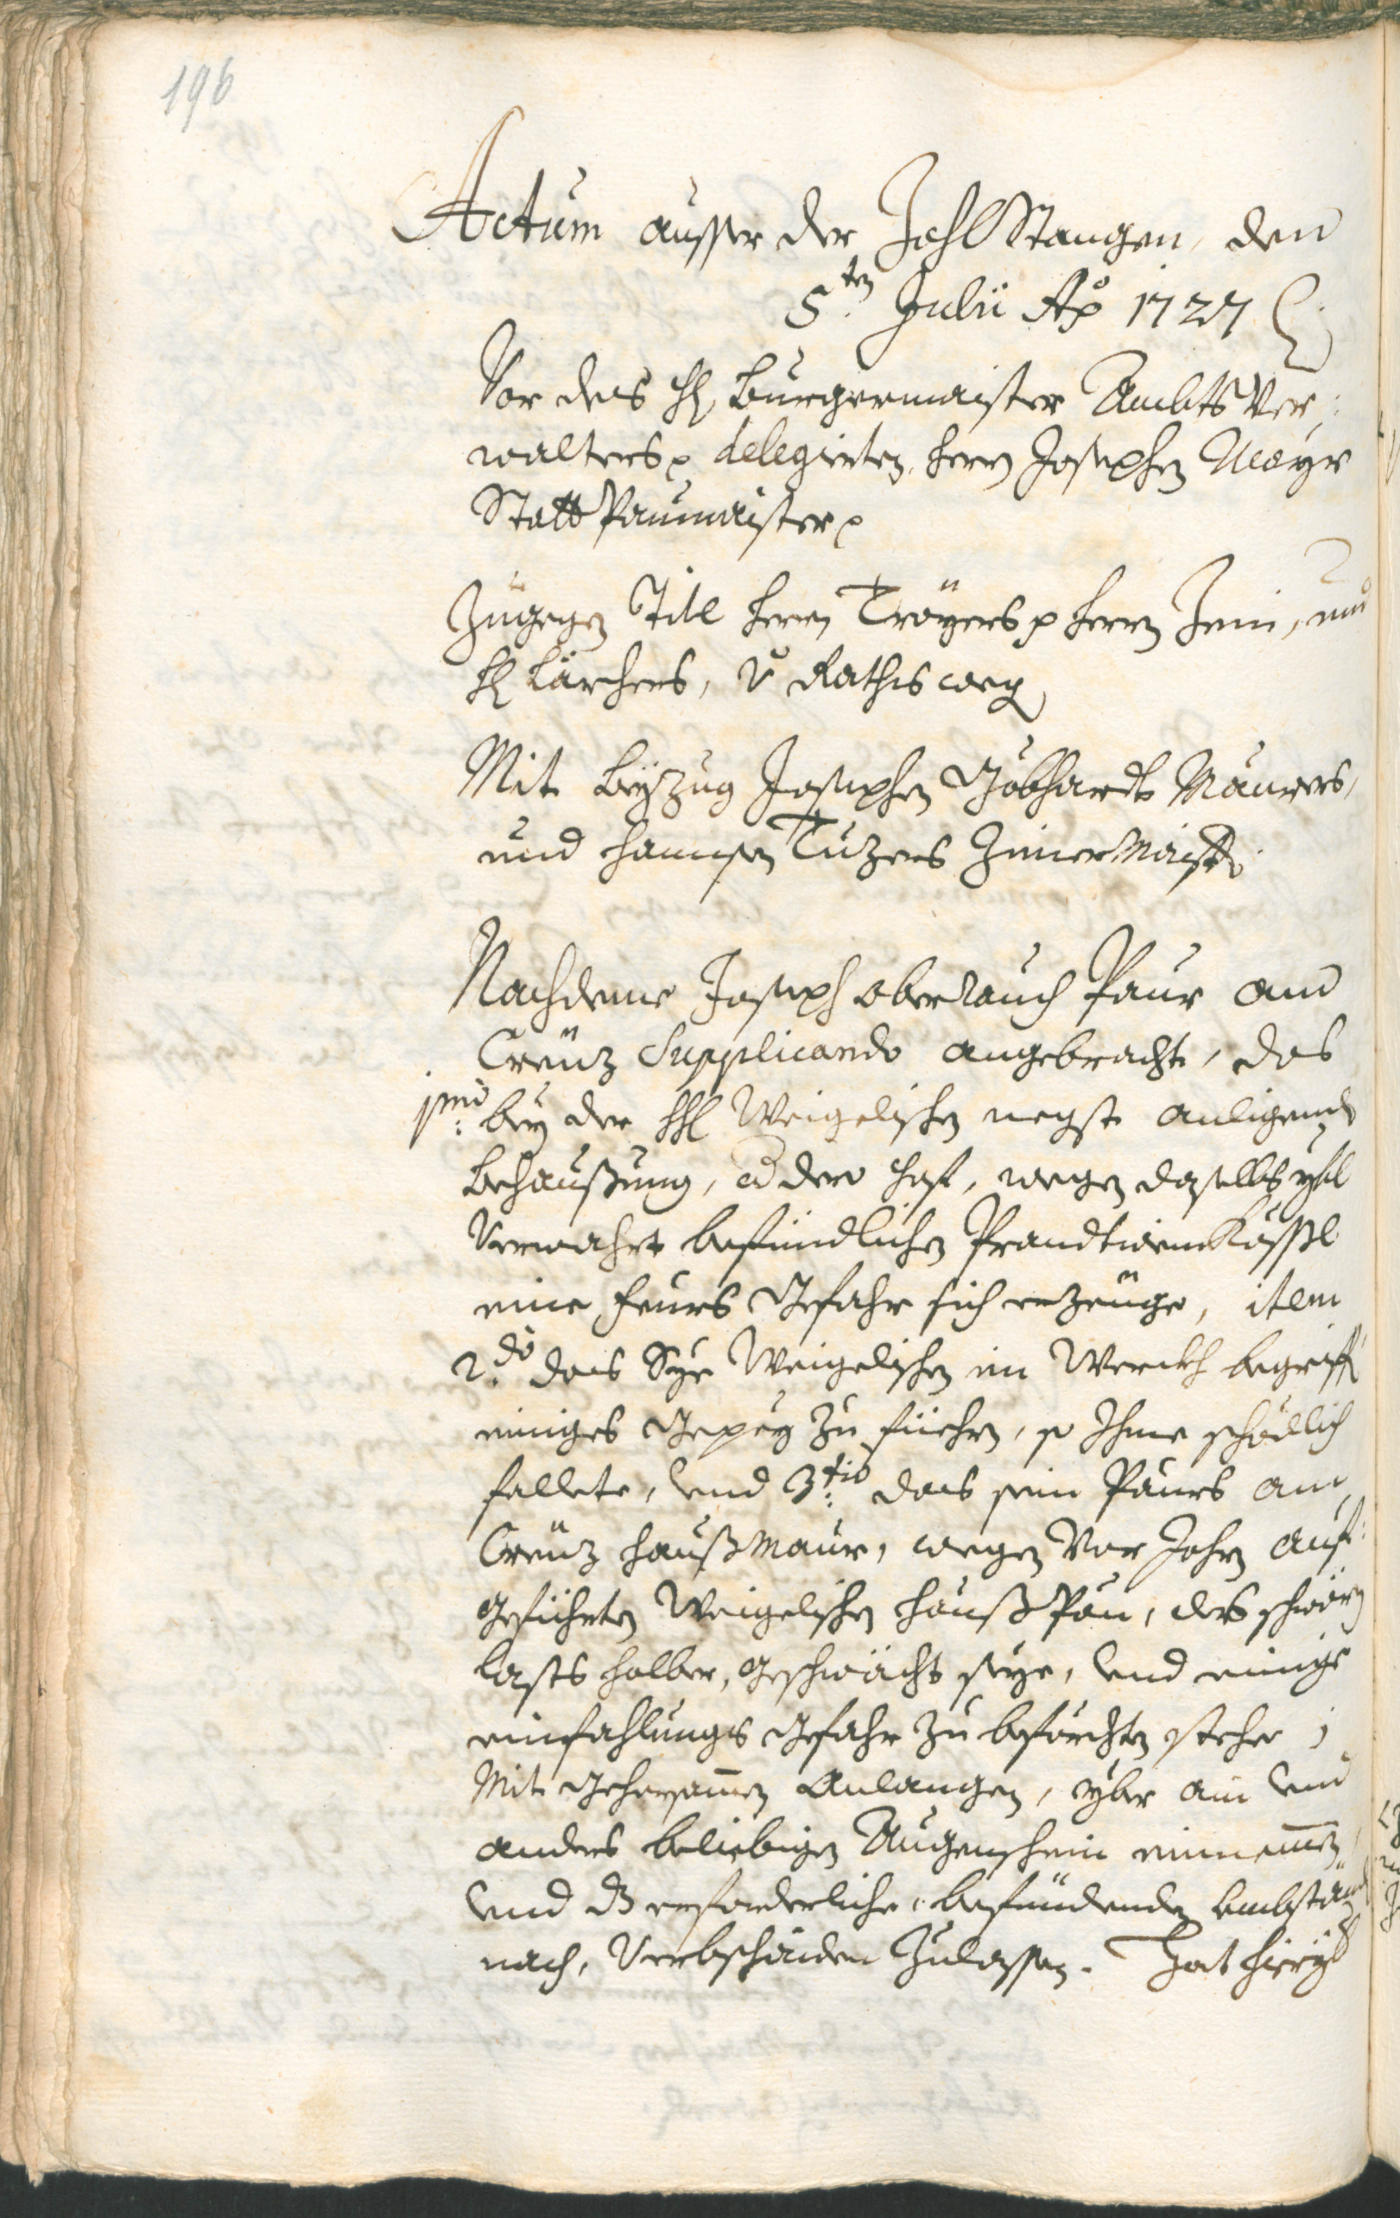 196
Actum ausser der Zohl Stangen, den
5ten Julii Ao 1727
Vor des H: Burgermaister Ambts Ver:
walters p delegierten, herrn Josephen Mayr
Statt Paumaister p
Zugegen Titl herrn Troyers p herrn Jenin, und
H: Lärchers, v Raths weg
Mit beyzug Josephen Gebhardt Maurers,
und hannsen Tuzers Zimermaistr
Nachdeme Joseph oberrauch Paur am
Creüz Supplicando angebracht, das
1mo: bey der HH: Weigelischen negst anligende
behaußung, dero hof, wegen daselbs ybl
Verwahrt befündlichen Prandtwein Kössl
eine feurs Gefahr sich erzeüge, item
2do: das Sye Weigelischen im Werckh begriff
einiges Gepey zu fiehren, so Ihme schedlich
fallete, vnd 3tio: das sein Paurs am
Creüz hauß Maur, wegen Vor Jahrn auf:
gefiehrten Weigelischen hauß Pau, des schwern
lasts halber, geschwächt seye, vnd einige
einfahlungs Gefahr zu beförchten stehe;
Mit gehorsamen Anlangen, yber ain vnd
anders beliebigen Augenschein einnemen,
vnd dz erforderliche, befündenden vmbstän
nach, Verbschaiden zulassen. Hat hieryb